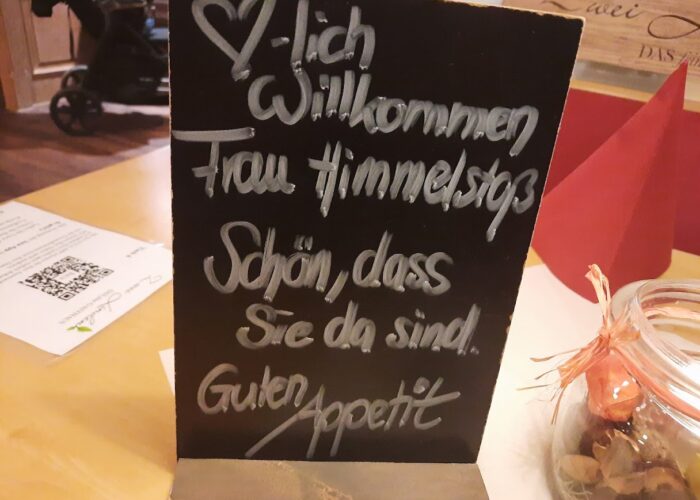 ♡-lich
Willkommen
Frau Himmelstoß
Schön, dass
Sie da sind.
Guten Appetit
Zwei
DAS